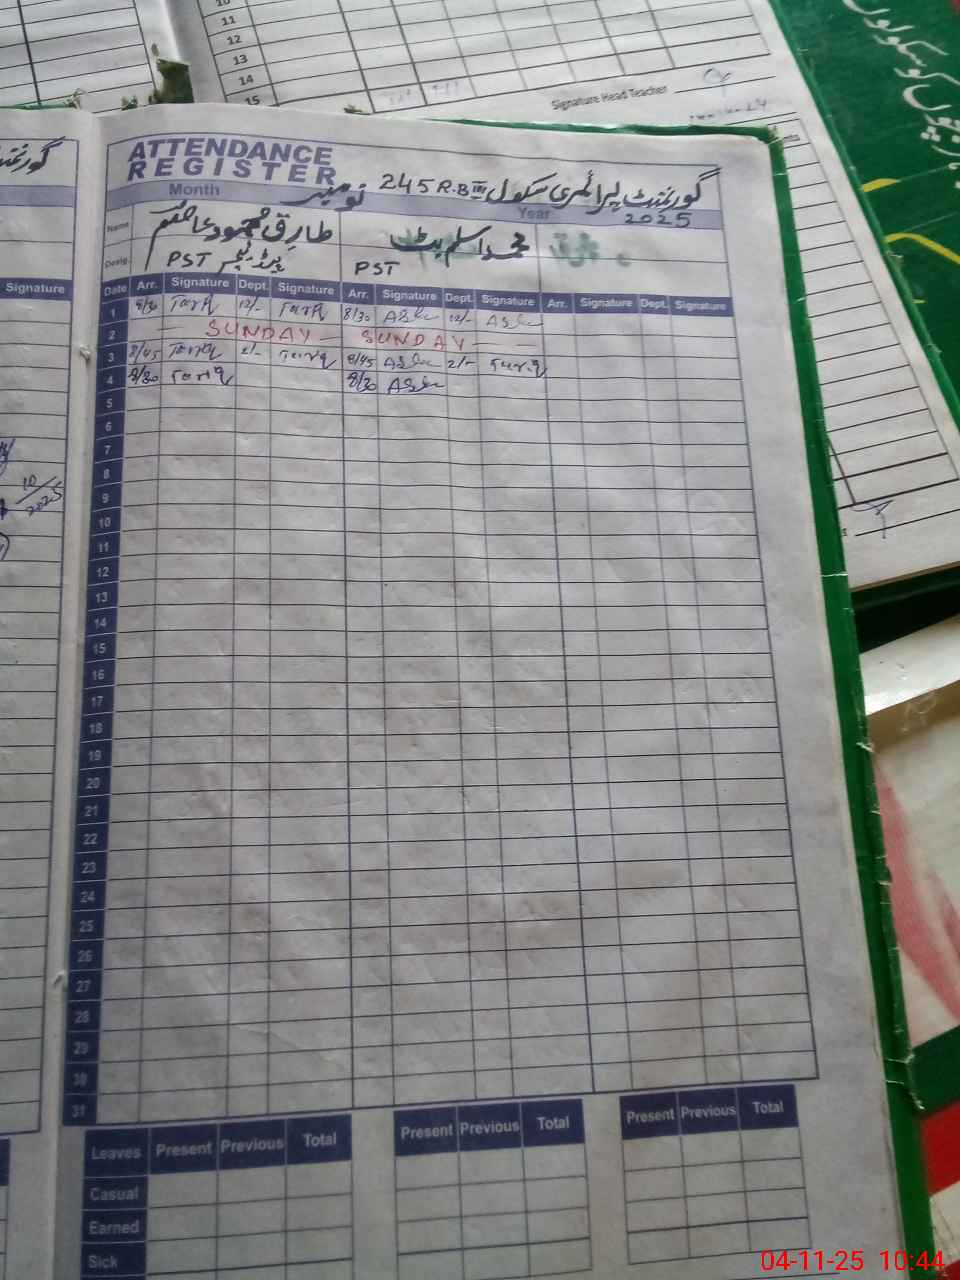 10
11
12
13
14
15
Signature Head Teacher
ATTENDANCE
REGISTER
Month نومبر 245 R.B III گورنمنٹ پرائمری سکول
Year 2025
Name طارق محمود عاصم محمد اسلم بٹ
Desig. PST ہیڈ ٹیچر PST
Signature
Date Arr. Signature Dept. Signature Arr. Signature Dept. Signature Arr. Signature Dept. Signature
1 8/30 Tariq 12/- Tariq 8/30 12/-
2 SUNDAY SUNDAY
3 8/45 Tariq 2/- Tariq 8/45 2/- Tariq
4 8/30 Tariq 8/30
5
6
7
8
9
10
11
12
13
14
15
16
17
18
19
20
21
22
23
24
25
26
27
28
29
30
31
10
2025
Leaves Present Previous Total Present Previous Total Present Previous Total
Casual
Earned
Sick
04-11-25 10:44